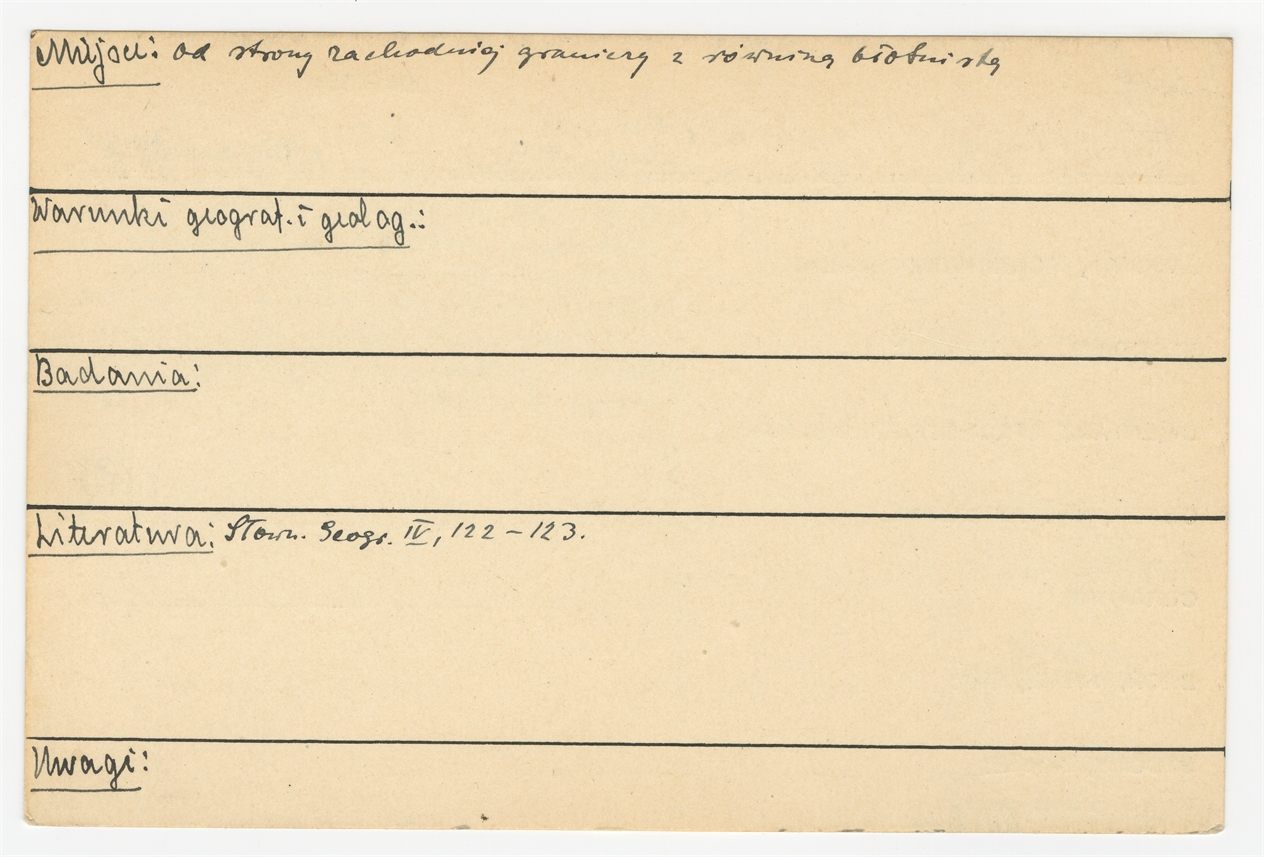 Miejsce: od strony zachodniej graniczy z równiną błotnistą
Warunki geograf. i geolog.:
Badania:
Literatura: Słown. Geogr. IV, 122 – 123.
Uwagi: